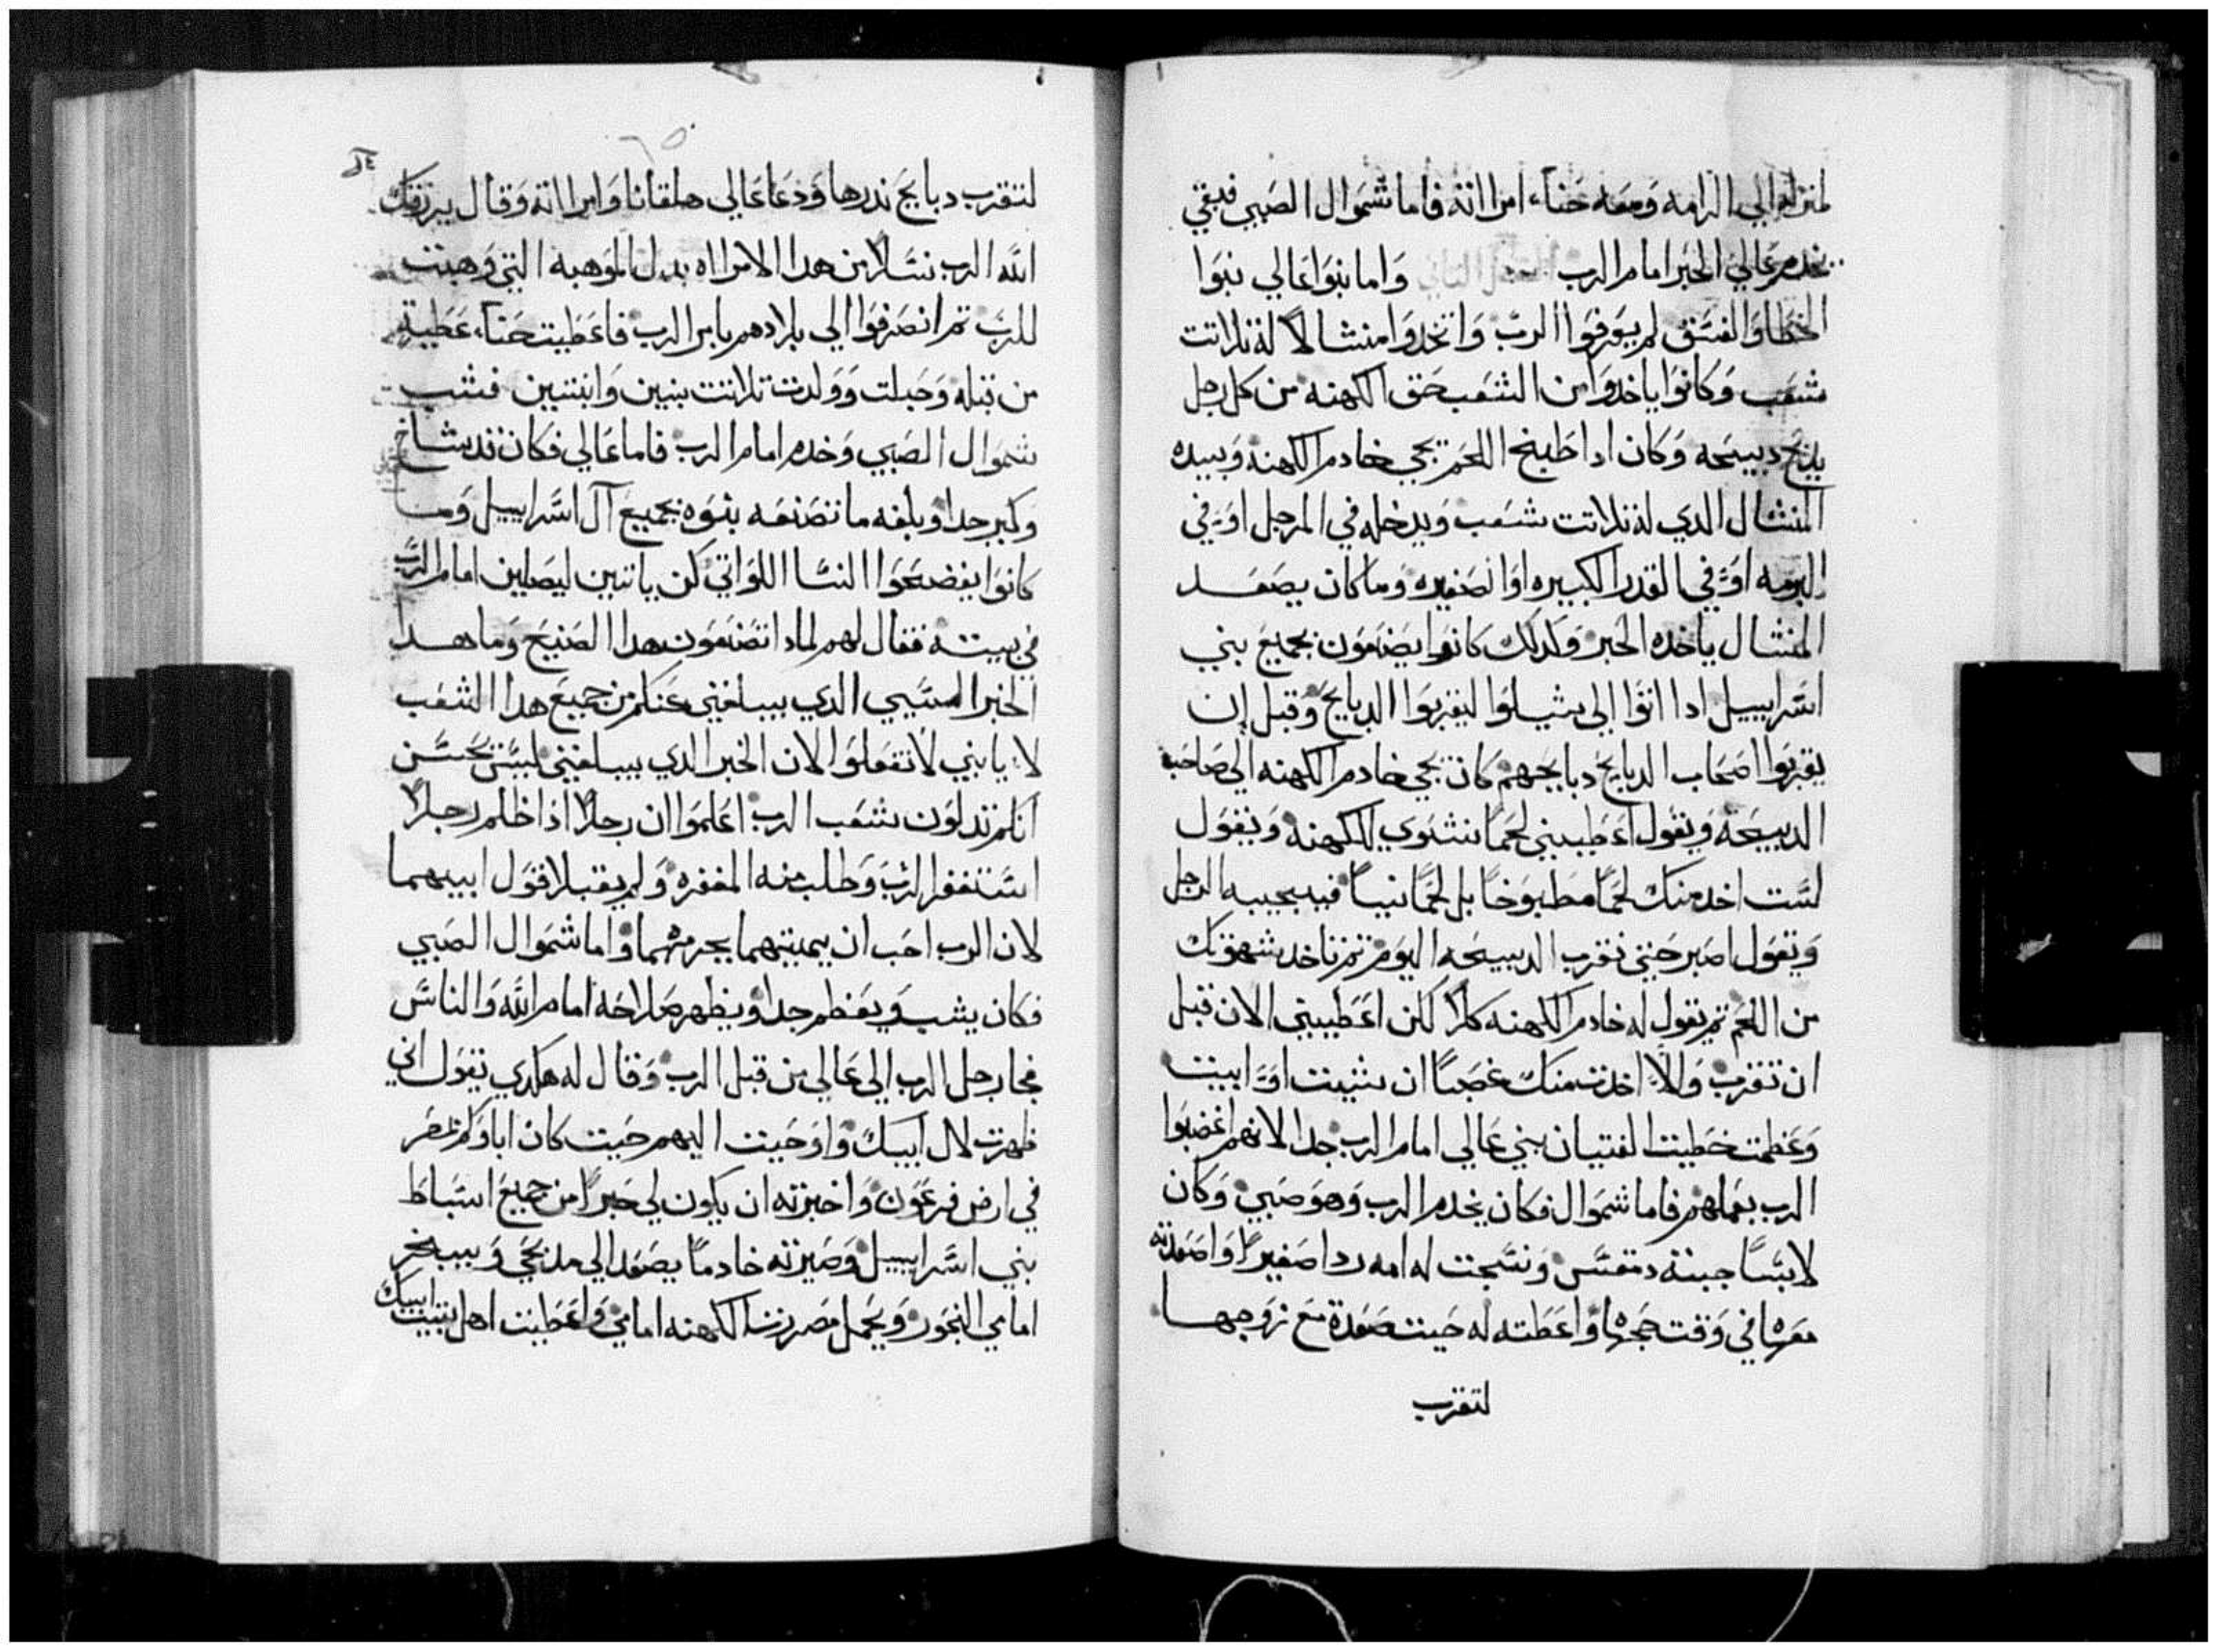 لمنزله الي الرامه ومعه حناء امراته فاما شموال الصبي فبقي
يخدم عالي الحبر امام الرب الفصل التاني واما بنوا عالي بنوا
الخطا والفسق لم يعرفوا الرب واتخدوا منشالاً له تلاتت
شعب وكانوا ياخدوا من الشعب حق الكهنه من كل رجل
يدبح دبيحه وكان ادا طبخ اللحم يجي خادم الكهنه وبيده
المنشال الدي له تلاتت شعب ويدخله في المرجل او في
البرمه او في القدر الكبيره او الصغيره وما كان يصعد
المنشال ياخده الحبر وكدلك كانوا يصنعون بجميع بني
اسراييل ادا اتوا الي شيلوا ليقربوا الدبايح وقبل ان
يقربوا اصحاب الدبايح دبايحهم كان يجي خادم الكهنه الي صاحب
الدبيحه ويقول اعطيني لحماً نشوي للكهنه ويقول
لست اخد منك لحماً مطبوخاً بل لحماً نيياً فيجيبه الرجل
ويقول اصبر حتي نقرب الدبيحه اليوم تم تاخد شهوتك
من اللحم تم يقول له خادم الكهنه كلا لكن اعطيني الان قبل
ان تقرب والا اخدت منك غصباً ان شيت او ابيت
وعظمت خطيت الفتيان بني عالي امام الرب جدا لانهم اغضبوا
الرب بعملهم فاما شموال فكان يخدم الرب وهو صبي وكان
لابساً جبته دمقس ونسجت له امه ردا صغيراً واصعدته
معها في وقت حجها واعطته له حيت صعدة مع زوجها
لتقرب
لتقرب دبايح ندرها ودعا عالي هلقانا وامراته وقال يرزقك
الله الرب نسلا من هدا الامراه بدل الموهبه التي وهبت
للرب تم انصرفوا الي بلادهم بامر الرب فاعطيت حناء عطيه
من قبله وحبلت وولدت تلاتت بنين وابنتين فشب
شموال الصبي وخدم امام الرب فاما عالي فكان قد شاخ
وكبر جدا وبلغه ما تصنعه بنوه بجميع آل اسراييل وما
كانوا يفضحوا النسا اللواتي كن ياتين ليصلين امام الرب
في بيته فقال لهم لمادا تصنعون هدا الصنيع وما هدا
الخبر السيي الدي يبلغني عنكم من جميع هدا الشعب
لا يا بني لا تفعلوا لان الخبر الدي يبلغني ليس يحسن
انكم تدلون شعب الرب اعلموا ان رجلاً ادا ظلم رجلاً
استغفر الرب وطلب منه المغفره ولم يقبلا قول ابيهما
لان الرب احب ان يميتهما بجرمهما واما شموال الصبي
فكان يشب ويعظم جدا ويظهر صلاحه امام الله والناس
فجا رجل الرب الي عالي من قبل الرب وقال له هكدي يقول اني
ظهرت لال ابيك واوحيت اليهم حيت كان اباوكم بمصر
في ارض فرعون واخترته ان يكون لي حبراً من جميع اسباط
بني اسراييل وصيرته خادماً يصعد الي مدبحي ويبخر
امامي البخور ويحمل مصررت الكهنه امامي واعطيت اهل بيت ابيك